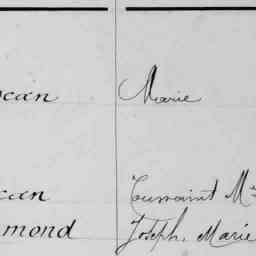 can Marie
can Toussaint M
mond Joseph, Marie